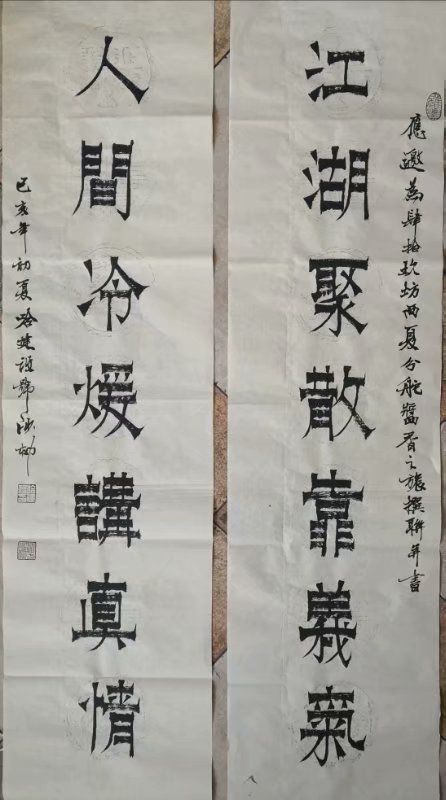 應邀為肆拾玖坊西夏分舵醬香之旅撰聯并書
江湖聚散靠義氣
人間冷煖講真情
己亥年初夏哈建設